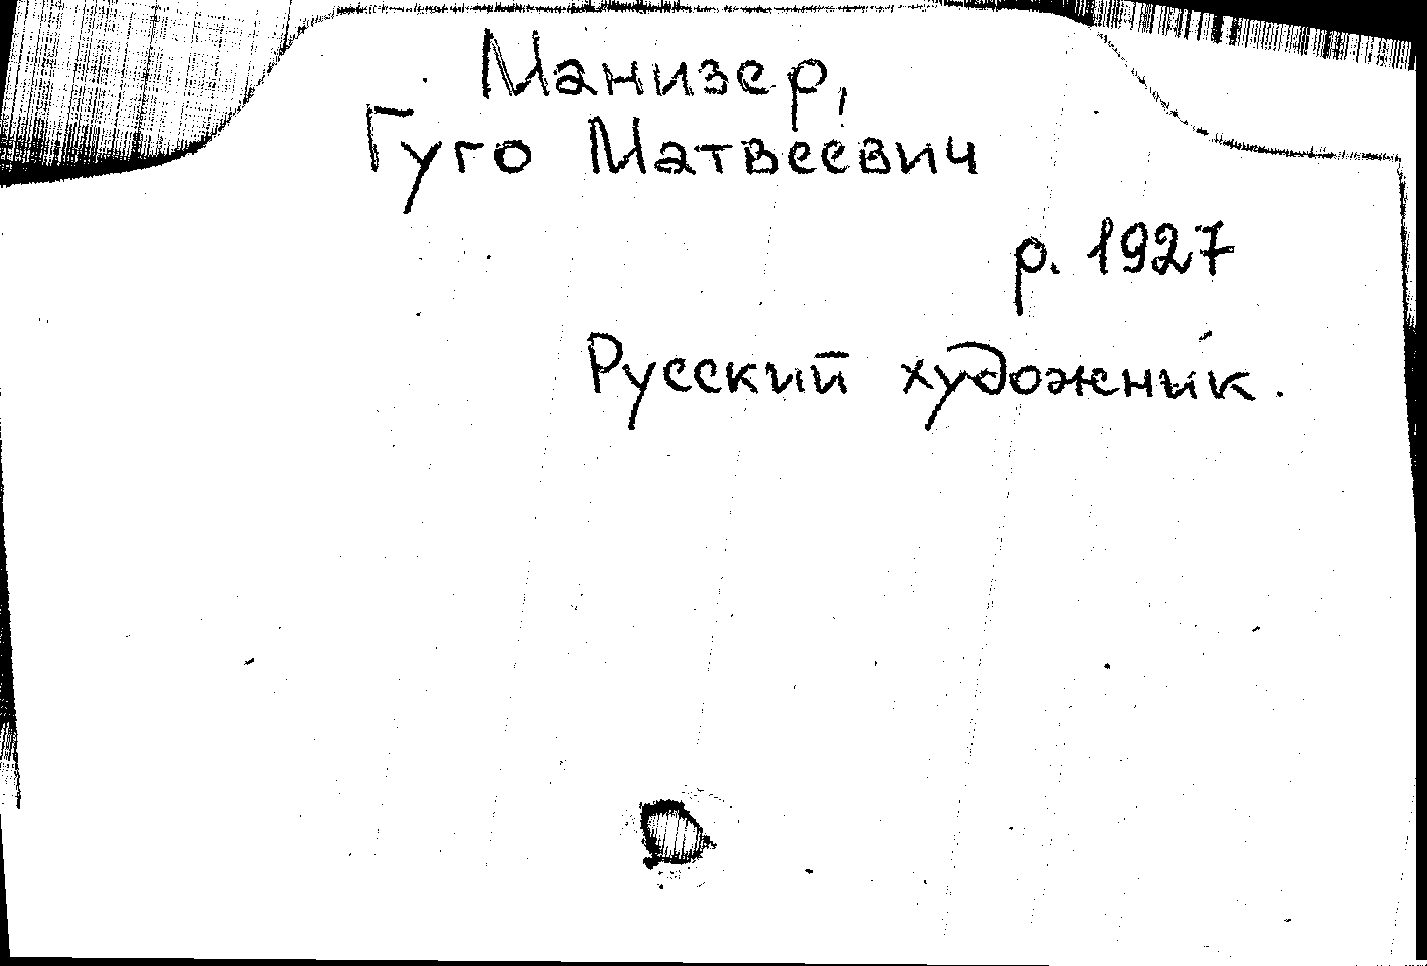 Манизер,
Гуго Матвеевич
р. 1927
Русский художник.